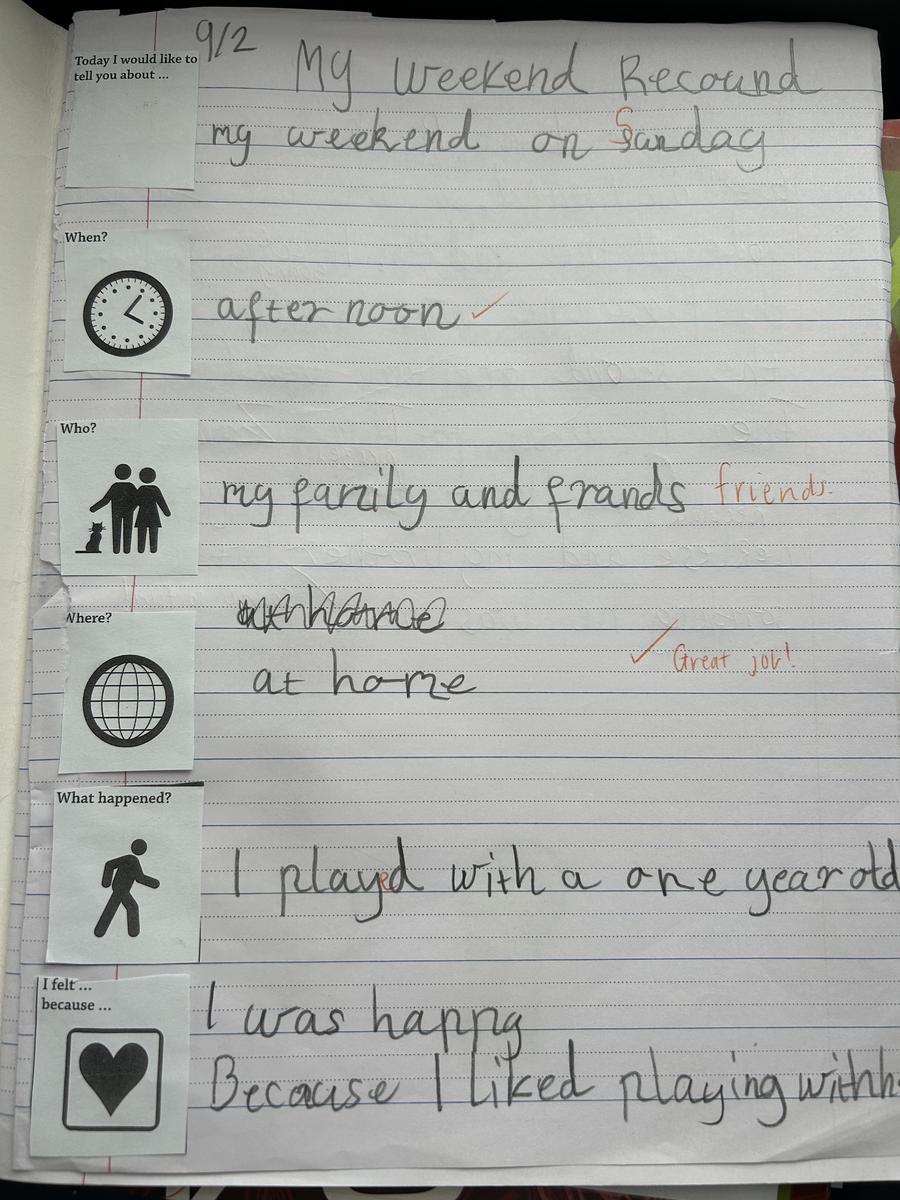 9/2
Today I would like to
tell you about ...
My Weekend Recound
my weekend on Sunday
When?
afternoon
Who?
my family and frands friends.
Where?
at home
Great job!
What happened?
I played with a one year old
I felt ...
because ...
I was happy
Because I liked playing with